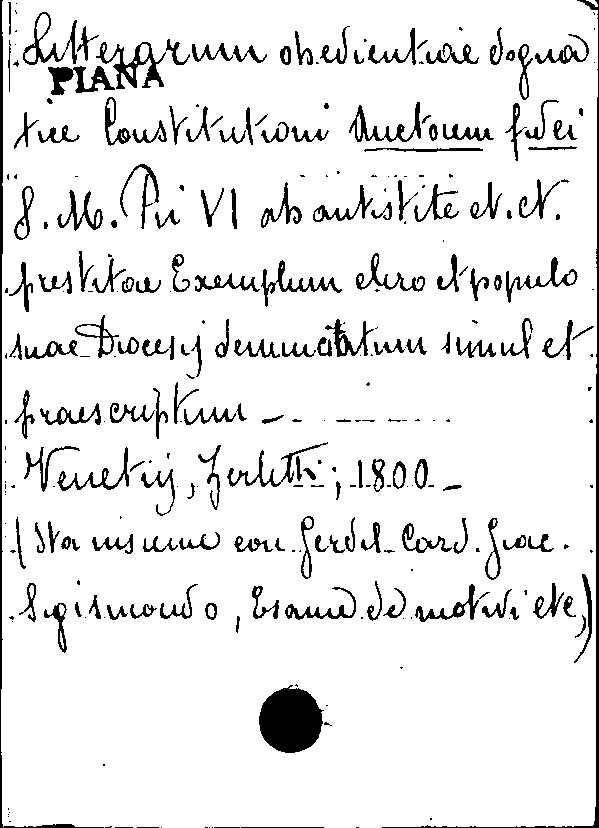 Litterarum obedientiae dogma
PIANA
ticae Constitutioni Auctorem fidei
S. M. Pii VI ab antistite et. ct.
prestitae Exemplum clero et populo
suae Diocesij denunciatum simul et
praescriptum –
Venetiij, Zerletti; 1800 –
(Sta insieme con Gerdil Card. Giac.
Sigismondo, Esame de motivi etc,)